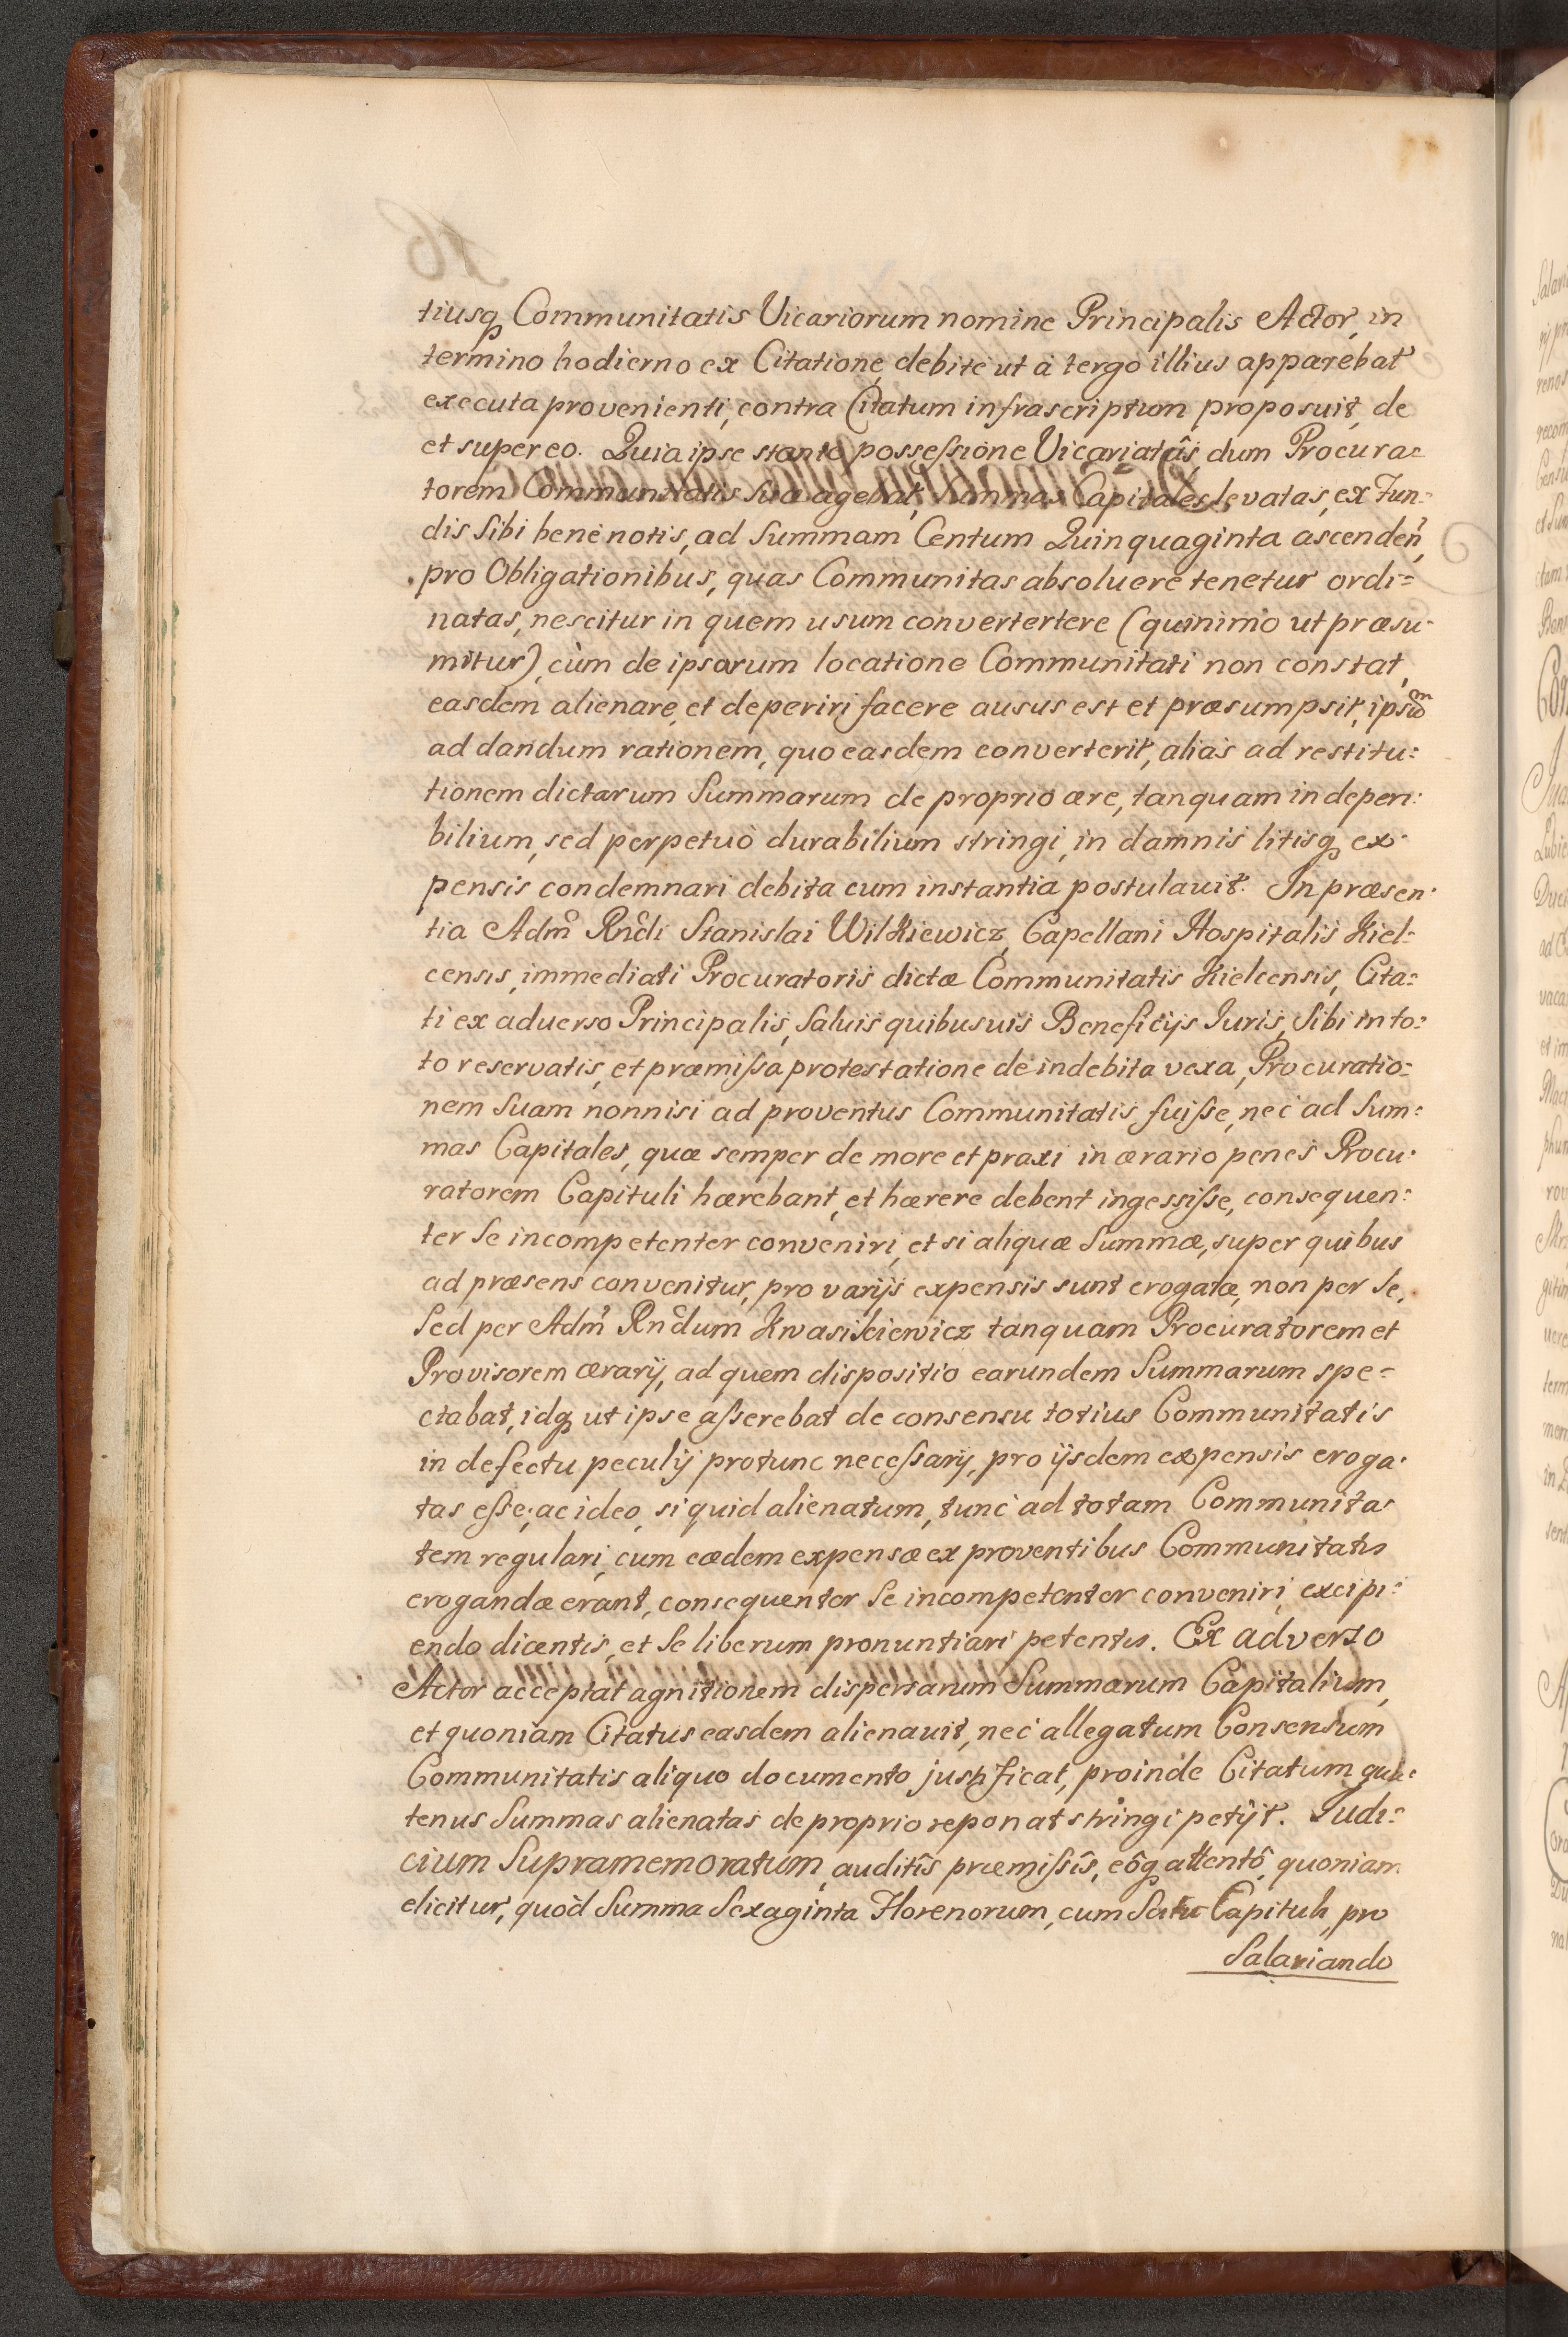 tiusq Communitatis Vicariorum nomine Principalis Actor, in
termino hodierno ex Citatione, debite ut à tergo illius apparebat
executa provenienti, contra Citatum infrascriptum proposuit, de
et super eo. Quia ipse stante possessione Vicariatûs, dum Procura=
torem Communitatis sua agebat, Summas Capitales levatas, ex Fun=
dis Sibi benè notis, ad Summam Centum Quinquaginta ascendeñ,
pro Obligationibus, quas Communitas absoluere tenetur ordi=
natas, nescitur in quem usum convertertere (quinimò ut præsu=
mitur), cùm de ipsarum locatione Communitati non constat,
easdem alienare, et deperiri facere ausus est et præsumpsit, ipsum
ad dandum rationem, quo easdem converterit, aliàs ad restitu=
tionem dictarum Summarum de proprio ære, tanquam indeperi=
bilium, sed perpetuò durabilium stringi, in damnis litisq, ex=
pensis condemnari debita cum instantia postulauit. In præsen=
tia Adm Rndi Stanislai Wilkiewicz, Capellani Hospitalis Kiel=
censis, immediati Procuratoris dictæ Communitatis Kielcensis, Cita=
ti ex aduerso Principalis, Saluis quibusuis Beneficijs Iuris, Sibi in to=
to reservatis, et præmissa protestatione de indebita vexa, Procuratio=
nem Suam nonnisi ad proventus Communitatis fuisse, nec ad Sum=
mas Capitales, quæ semper de more et praxi in ærario penes Procu=
ratorem Capituli hærebant, et hærere debent ingessisse, consequen=
ter Se incompetenter conveniri, et si aliquæ Summæ, super quibus
ad præsens convenitur, pro varijs expensis sunt erogatæ, non per Se,
Sed per Adm Rndum Kwasikiewicz tanquam Procuratorem et
Provisorem ærarij, ad quem dispositio earundem Summarum spe=
ctabat, idq, ut ipse asserebat de consensu totius Communitatis
in defectu peculij protunc necessarij, pro ijsdem expensis eroga=
tas esse; ac ideo, si quid alienatum, tunc ad totam Communita=
tem regulari, cum eædem expensæ ex proventibus Communitatis
erogandæ erant, consequenter Se incompetenter conveniri, excipi=
endo dicentis, et Se liberum pronuntiari petentis. Ex adverso
Actor acceptat agnitionem dispersarum Summarum Capitalium,
et quoniam Citatus easdem alienauit, nec allegatum Consensum
Communitatis aliquo documento justificat, proinde Citatum qua=
tenus Summas alienatas de proprio reponat stringi petijt. Judi=
cium Supramemoratum, auditîs præmissîs, eôq attentô, quoniam
elicitur, quòd Summa Sexaginta Florenorum, cum Scitu Capituli, pro
Salariando